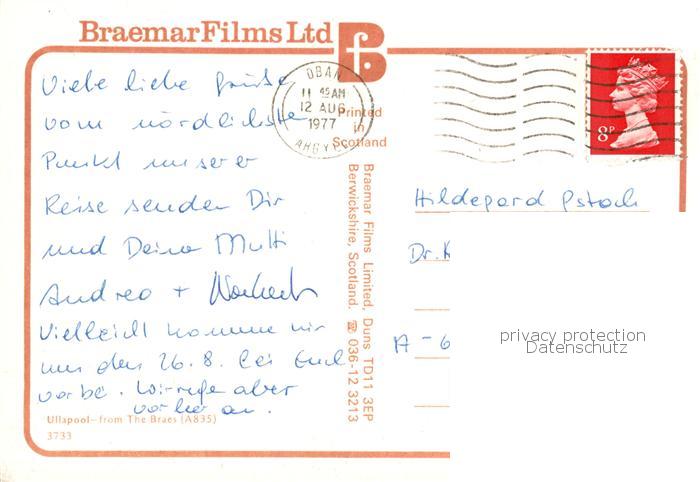 Braemar Films Ltd
Viele liebe Grüße
vom nördlichsten
Punkt unserer
Reise senden Dir
und Deiner Mutti
Andrea + Norbert
Vielleicht kommen wir
um den 26.8. bei Euch
vorbei. Wir rufen aber
vorher an.
Ullapool-from The Braes (A835)
3733
OBAN
11 45 AM
12 AUG
1977
ARGYLL
Printed
in
Scotland
Braemar Films Limited, Duns TD11 3EP
Berwickshire, Scotland. ☎ 036-12 3213
8P
Hildegard
Dr.
A-6
privacy protection
Datenschutz